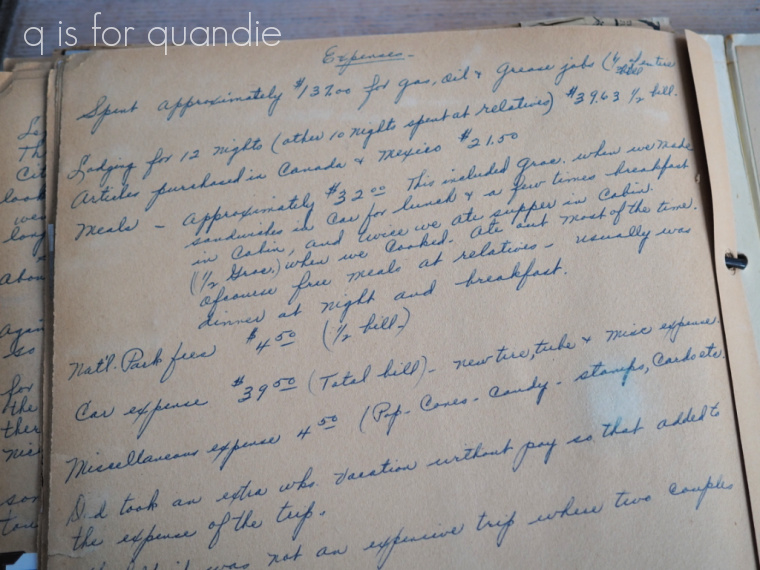 q is for quandie
Expenses-
Spent approximately $137.00 for gas, oil & grease jobs (½ of entire bill
Lodging for 12 nights (other 10 nights spent at relatives) $39.63 ½ bill.
Articles purchased in Canada & Mexico $21.50
Meals - approximately $32.00 This included groc. when we made
sandwiches in car for lunch & a few times breakfast
in cabin, and twice we ate supper in cabin.
(½ Groc.) when we cooked. Ate out most of the time.
Ofcourse free meals at relatives - usually was
dinner at night and breakfast.
Nat'l. Park fees $4.50 (½ bill.)
Car expense $39.50 (Total bill) - new tire, tube & misc expense.
Miscellaneous expense 4.50 (Pop - Cones - candy - stamps, Cards etc.
took an extra wks. vacation without pay so that added to
the expense of the trip.
it was not an expensive trip where two couples